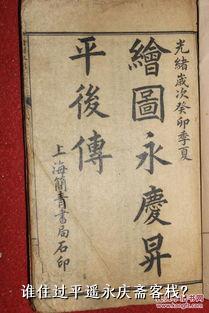 光緒歲次癸卯季夏
繪圖永慶昇
平後傳
上海簡青書局石印
谁住过平遥永庆斋客栈?